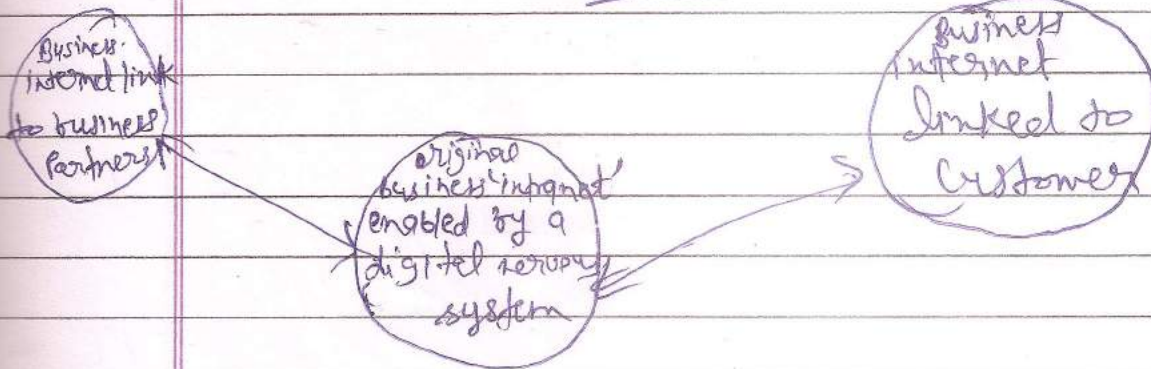 Business
internel link
to business
Partners
original
business 'intranet'
enabled by a
digitel nervous
system
Business
internet
linked to
Customer